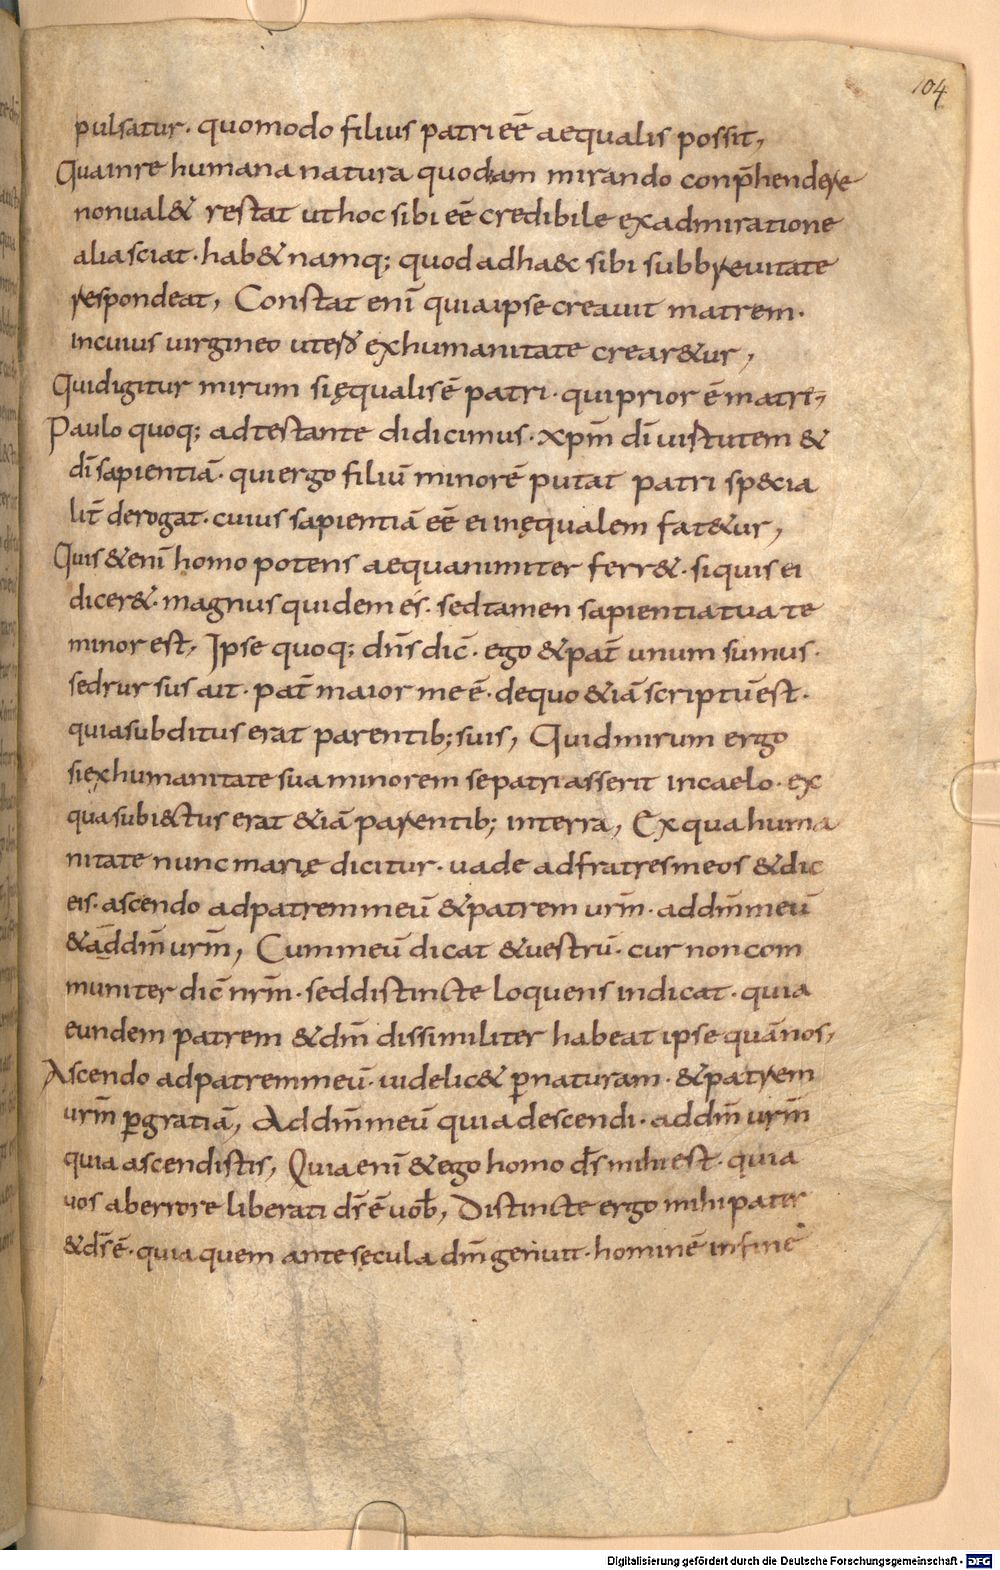 104
pulsatur· quomodo filius patri eē aequalis possit,
Qua inre humana natura quodam mirando conp̄hendere
nonual& restat ut hoc sibi eē credibile ex admiratione
alia sciat· hab& namq; quod ad haec sibi sub breuitate
respondeat, Constat enī quia ipse creauit matrem·
in cuius uirgineo utero ex humanitate crear&ur,
Quid igitur mirum si ęqualis ē patri· qui prior ē matre,
Paulo quoq; adtestante didicimus· xp̄m dī uirtutem &
dī sapientiā· qui ergo filiū minorē putat patri specia
lit̄ derogat· cuius sapientiā eē ei inęqualem fat&ur,
Quis &enī homo potens aequanimiter ferr&· si quis ei
dicer&· magnus quidem es· sed tamen sapientia tua te
minor est, Ipse quoq; dn̄s dic̄· ego & pat̄ unum sumus·
sed rursus ait· pat̄ maior me ē· de quo &iā scriptū est·
quia subditus erat parentib; suis, Quid mirum ergo
si ex humanitate sua minorem se patri asserit in caelo· ex
qua subiectus erat &iā parentib; in terra, Ex qua huma
nitate nunc marię dicitur· uade ad fratres meos & dic
eis· ascendo ad patrem meū & patrem ur̄m· ad dm̄ meū
& ad dm̄ ur̄m, Cum meū dicat & uestrū· cur non com
muniter dic̄ nr̄m· sed distincte loquens indicat· quia
eundem patrem & dm̄ dissimiliter habeat ipse quā nos,
Ascendo ad patrem meū· uidelic& ꝑ naturam· & patrem
ur̄m ꝑ gratiā, Ad dm̄ meū quia descendi· ad dm̄ ur̄m
quia ascendistis, Quia enī & ego homo ds̄ mihi est· quia
uos ab errore liberati ds̄ ē uob̄, Distincte ergo mihi pater
& ds̄ ē· quia quem ante sęcula dm̄ genuit· hominē in fine
Digitalisierung gefördert durch die Deutsche Forschungsgemeinschaft - DFG